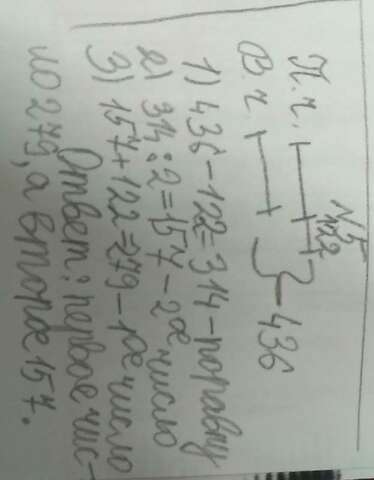 N5
П.ч. 122
В.ч. } - 436
1) 436-122=314-поравну
2) 314:2=157-2ое число
3) 157+122=279-1ое число
Ответ: первое чис-
ло 279, а второе 157.